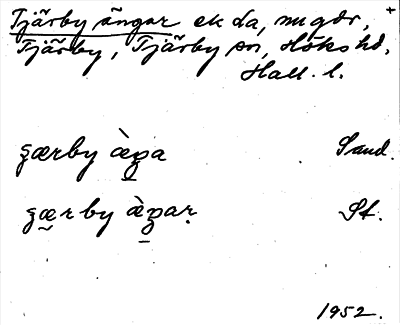 Tjärby ängar ek da, nu gdr, +
Tjärby, Tjärby sn, Höks hd,
Hall. l.
ʒærby æ̀ŋa Sand.
ʒærby æ̀ŋar St.
1952.